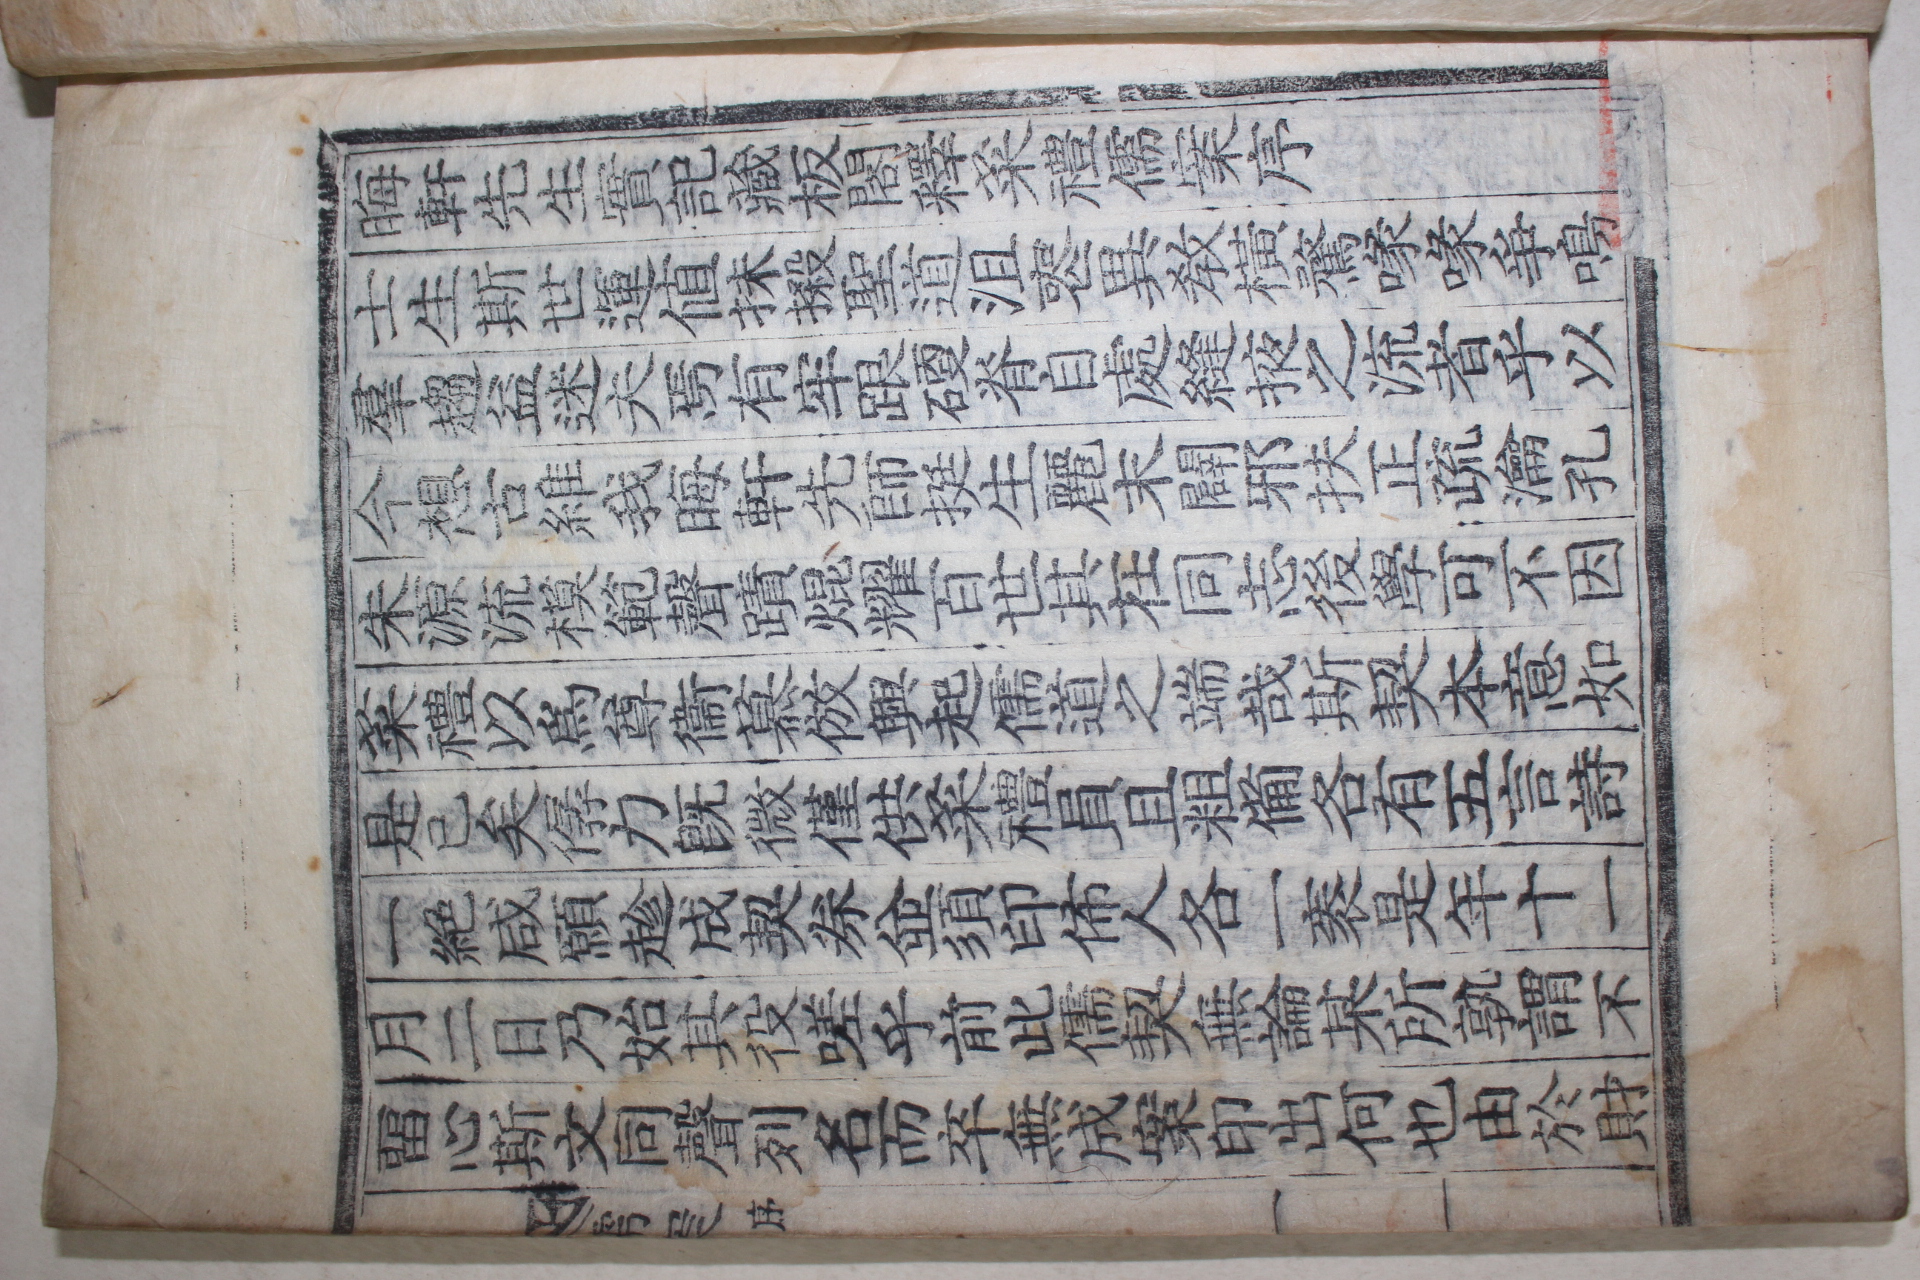 晦軒先生實記藏板閣釋菜禮儒案序
士生斯世運値抹摋聖道沮喪異教橫鶩喙喙爭鳴
羣趨益迷夫焉有牢跟硬脊自處縫掖之流者乎以
今想古維我晦軒先師挺生麗末闢邪扶正疏瀹孔
朱源流模範聲蹟焜耀百世其在同志後學可不因
菜禮以爲尊衞慕倣興起儒道之端哉斯契本意如
是已矣孱力旣微僅供菜禮員且粗備各有五言詩
一絶咸願趁成契券並須印佈人各一袠是年十一
月二日乃始其役嗟乎前此儒契無論某所孰謂不
留心斯文同聲列名而卒無成案印出何也由於財
儒案 序 一